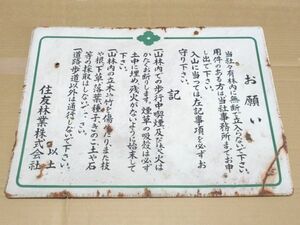 お願い
当社々有林内に無断で立入らないで下さい。
用件のある方は当社事務所までお申
し出て下さい。
入山に当っては左記事項を必ずお
守り下さい。
記
一、山林内での歩行中喫煙及びたき火は
かたくお断りします。煙草の吸殻は必ず
土中に埋め残火がないように始末して
下さい。
一、山林内の立木や竹を傷つけたり又枝
や根、下草、落葉、種子、きのこ、土や石
等の採取はしないで下さい。
一、道路歩道以外は通行しないで下さい。
以上
住友林業株式会社